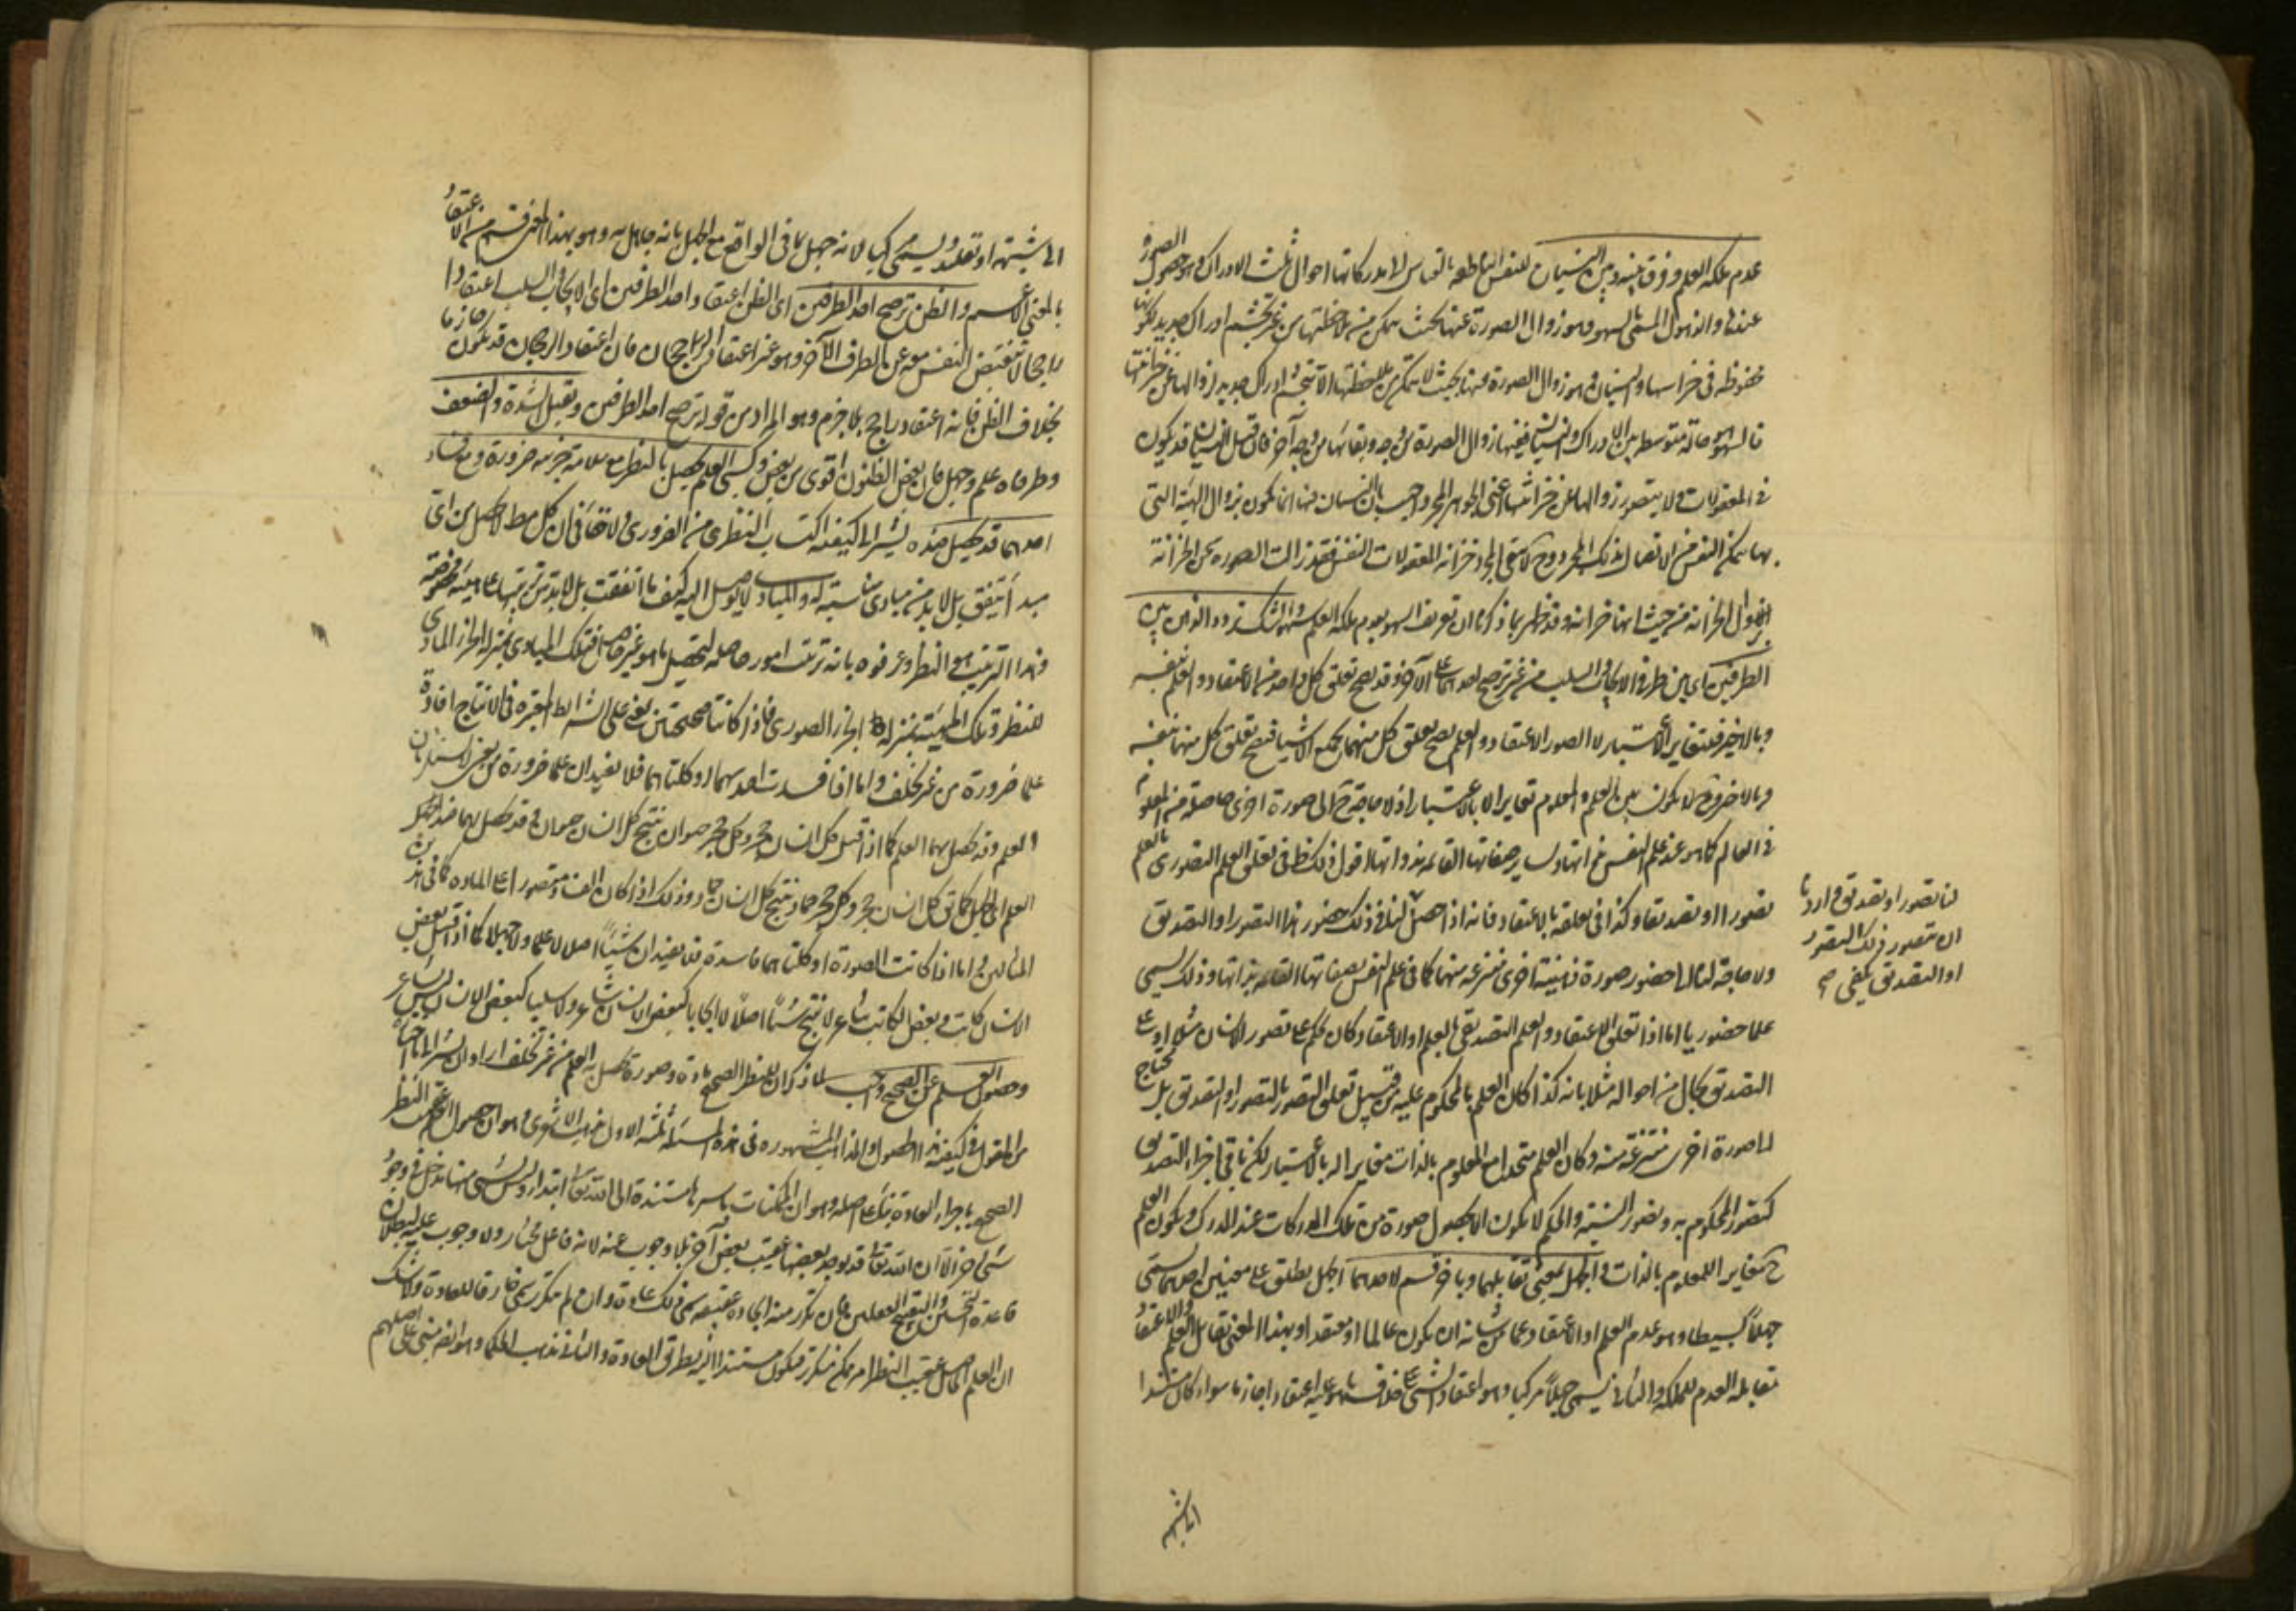 عدم ملكة العلم وفرق بينه وبين النسيان للنفس الناطقة بالقياس الى مدركاتها احوال ثلث الادراك وهو حصول الصورة
عندها والذهول المسمى بالسهو وهو زوال الصورة عنها بحيث يتمكن من ملاحظتها من غير تجشم ادراك جديد لكونها
محفوظة فى خزانتها والنسيان وهو زوال الصورة عنها بحيث لا يتمكن من ملاحظتها الا بتجشم ادراك جديد لزوالها عن خزانتها
فالسهو حالة متوسطة بين الادراك والنسيان ففيها زوال الصورة من وجه وبقائها من وجه آخر فان قيل النسيان قد يكون
فى المعقولات ولا يتصور زوالها عن خزانتها اعنى الجوهر المجرد اجيب بان النسيان فيها انما يكون بزوال الهيئة التى
بها تتمكن النفس من الاتصال بذلك المجرد وح لا يبقى المجرد خزانة لمعقولات النفس فقد زالت الصورة عن الخزانة
لزوال الخزانة من حيث انها خزانة وقد ظهر بما ذكرنا ان تعريف السهو بعدم ملكة العلم مشهور والشك تردد الذهن بين
الطرفين اى بين طرفى الايجاب والسلب من غير ترجيح احدهما على الآخر وقد يصح تعلق كل واحد من الاعتقاد والعلم بنفسه
وبالاخير فيتغاير الاعتبار لا الصور الاعتقاد والعلم يصح تعلق كل منهما بجميع الاشياء فيصح تعلق كل منهما بنفسه
وبالاخر وح لا يكون بين العلم والمعلوم تغاير الا بالاعتبار اذ لا حاجة ح الى صورة اخرى حاصلة من المعلوم
فى العالم كما هو عند علم النفس بذاتها وسائر صفاتها القائمة بذواتها اقول ذلك ظ فى تعلق العلم التصورى بالعلم
تصورا او تصديقا وكذا فى تعلقه بالاعتقاد فانه اذا حصل لنا فى ذلك حضور هذا التصور او التصديق
ولا حاجة لنا الى حضور صورة ذهنية اخرى منتزعة منهما كما فى علم النفس بصفاتها القائمة بذاتها وذلك يسمى
علما حضوريا اما اذا تعلق الاعتقاد والعلم التصديقى بالعلم او الاعتقاد كان يحكم على تصور الانسان مثلا او على
التصديق بحال من احواله مثلا بانه كذا كان العلم بالمحكوم عليه من قبيل تعلق التصور بالتصور او التصديق بل يحتاج
الى صورة اخرى منتزعة منه وكان العلم متحدا مع المعلوم بالذات مغايرا له بالاعتبار لكن باقى اجزاء التصديق
كتصور المحكوم به وتصور النسبة والحكم لا يكون الا بحصول صورة من تلك المدركات عند المدرك ويكون العلم
ح مغايرا للمعلوم بالذات والجهل بمعنى تقابلهما وبآخر قسم لاحدهما الجهل يطلق على معنيين احدهما يسمى
جهلا بسيطا وهو عدم العلم او الاعتقاد عما من شانه ان يكون عالما او معتقدا وبهذا المعنى تقابل العلم والاعتقاد
تقابل العدم للملكة والثانى يسمى جهلا مركبا وهو اعتقاد الشئ على خلاف ما هو عليه اعتقادا جازما سواء كان مستندا
لنا تصور او تصديق واردنا
ان نتصور ذلك التصور
او التصديق يكفى صح
الى شبهة
الى شبهة او تقليد ويسمى مركبا لانه جهل بما فى الواقع مع الجهل بانه جاهل به وهو بهذا المعنى قسم من الاعتقاد
بالمعنى الاعم والظن ترجيح احد الطرفين اى الظن اعتقاد احد الطرفين اى الايجاب والسلب اعتقادا
راجحا لا تنقبض النفس معه عن الطرف الآخر وهو غير اعتقاد الرجحان فان اعتقاد الرجحان قد يكون جازما
بخلاف الظن فانه اعتقاد راجح بلا جزم وهو المراد من قوله ترجيح احد الطرفين ويقبل الشدة والضعف
وطرفاه علم وجهل فان بعض الظنون اقوى من بعض وكسبى العلم يحصل بالنظر مع سلامة جزئيه ضرورة ومع فساد
احدهما قد يحصل ضده يشير الى كيفية اكتساب النظرى من الضرورى ولا خفاء فى ان كل مط لا يحصل من اى
مبدأ يتفق بل لا بد من مبادى مناسبة له والمبادى لا يوصل اليه كيف ما اتفقت بل لا بد من ترتيبها على هيئة مخصوصة
وهذا الترتيب هو النظر وعرفوه بانه ترتيب امور حاصلة لتحصيل ما هو غير حاصل فتلك المبادى بمنزلة الجزء المادى
للنظر وتلك الهيئة بمنزلة الجزء الصورى فاذا كانتا صحيحتين يعنى على الشرائط المعتبرة فى الانتاج افادتا
علما ضرورة من غير تخلف واما اذا فسدت احدهما او كلتاهما فلا يفيدان علما ضرورة
العلم وقد يحصل بهما العلم كما اذا قيل كل انسان حجر وكل حجر حيوان ينتج كل انسان حيوان وقد يحصل بهما ضد
العلم اى الجهل كما فى كل انسان حجر وكل حجر جماد ينتج كل انسان جماد وذلك اذا كان الفساد مقصورا على المادة كما فى هذين
المثالين واما اذا كانت الصورة او كلتاهما فاسدة فلا يفيدان شيئا اصلا لا علما ولا جهلا كما اذا قيل بعض
الانسان كاتب وبعض الكاتب شاعر لا ينتج شيئا اصلا لا ايجابا كبعض الانسان شاعر ولا سلبا كبعض الانسان ليس بشاعر
وحصول العلم عن الصحيح واجب لما ذكر ان للنظر الصحيح مادة وصورة يحصل به العلم من غير تخلف اراد ان يشير الى ما
هو المنقول فى كيفية هذا الحصول والمذاهب المشهورة فى هذه المسئلة ثلثة الاول مذهب الاشعرى وهو ان حصول العلم عقيب النظر
الصحيح باجراء العادة بناء على اصله وهو ان الممكنات باسرها مستندة الى الله تعالى ابتداء وليس لشئ منها مدخل فى وجود
شئ آخر الا ان الله تعالى قد يوجد بعضها عقيب بعض آخر بلا وجوب عنه لانه فاعل مختار ولا وجوب عليه لبطلان
قاعدة التحسين والتقبيح العقليين فان تكرر منه ايجاده عقيبه سمى ذلك عادة وان لم يتكرر سمى خارقا للعادة ولا شك
ان العلم الحاصل عقيب النظر امر ممكن متكرر فيكون مستندا اليه بطريق العادة والثانى مذهب الحكماء وهو انه مبنى على اصلهم